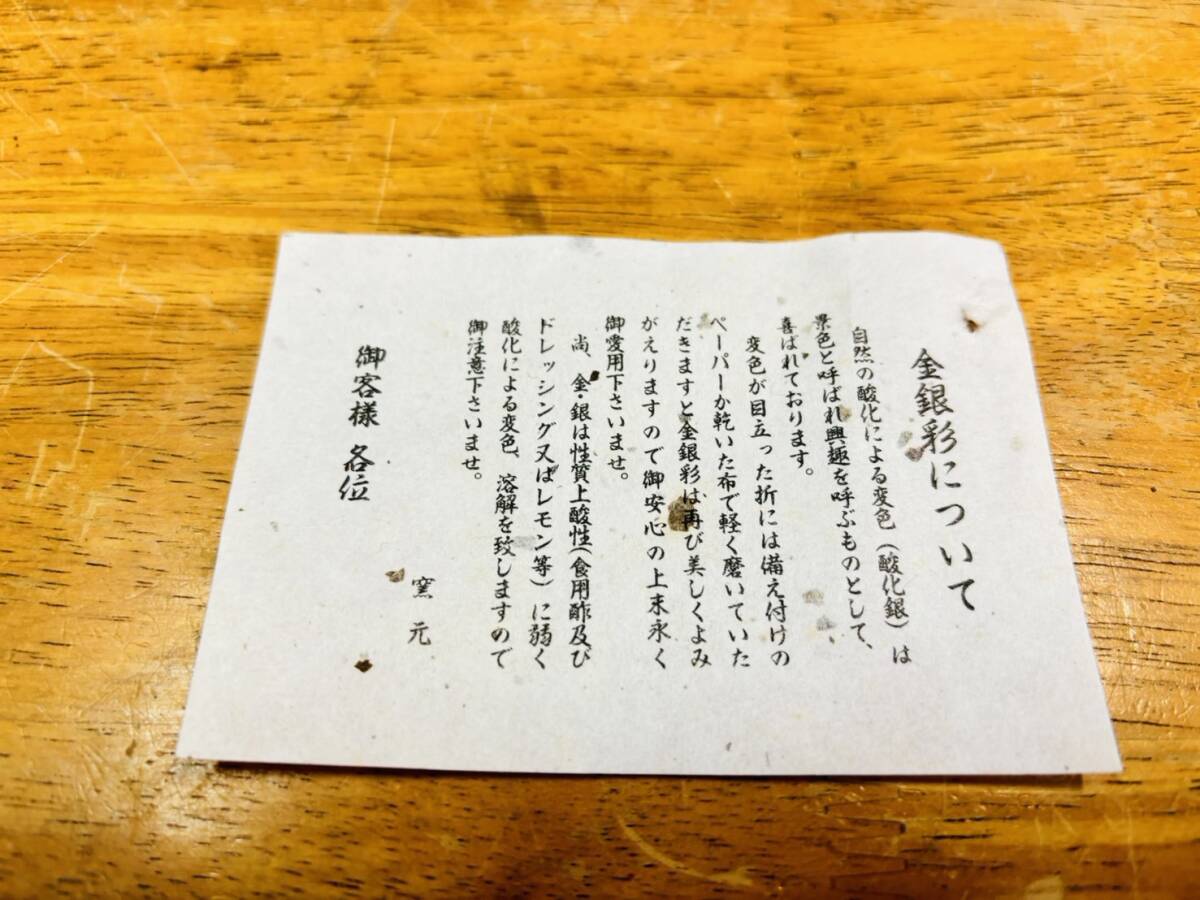 金銀彩について
自然の酸化による変色（酸化銀）は
景色と呼ばれ興趣を呼ぶものとして、
喜ばれております。
変色が目立った折には備え付けの
ペーパーか乾いた布で軽く磨いていた
だきますと金銀彩は再び美しくよみ
がえりますので御安心の上末永く
御愛用下さいませ。
尚、金・銀は性質上酸性（食用酢及び
ドレッシング又はレモン等）に弱く
酸化による変色、溶解を致しますので
御注意下さいませ。
窯元
御客様 各位